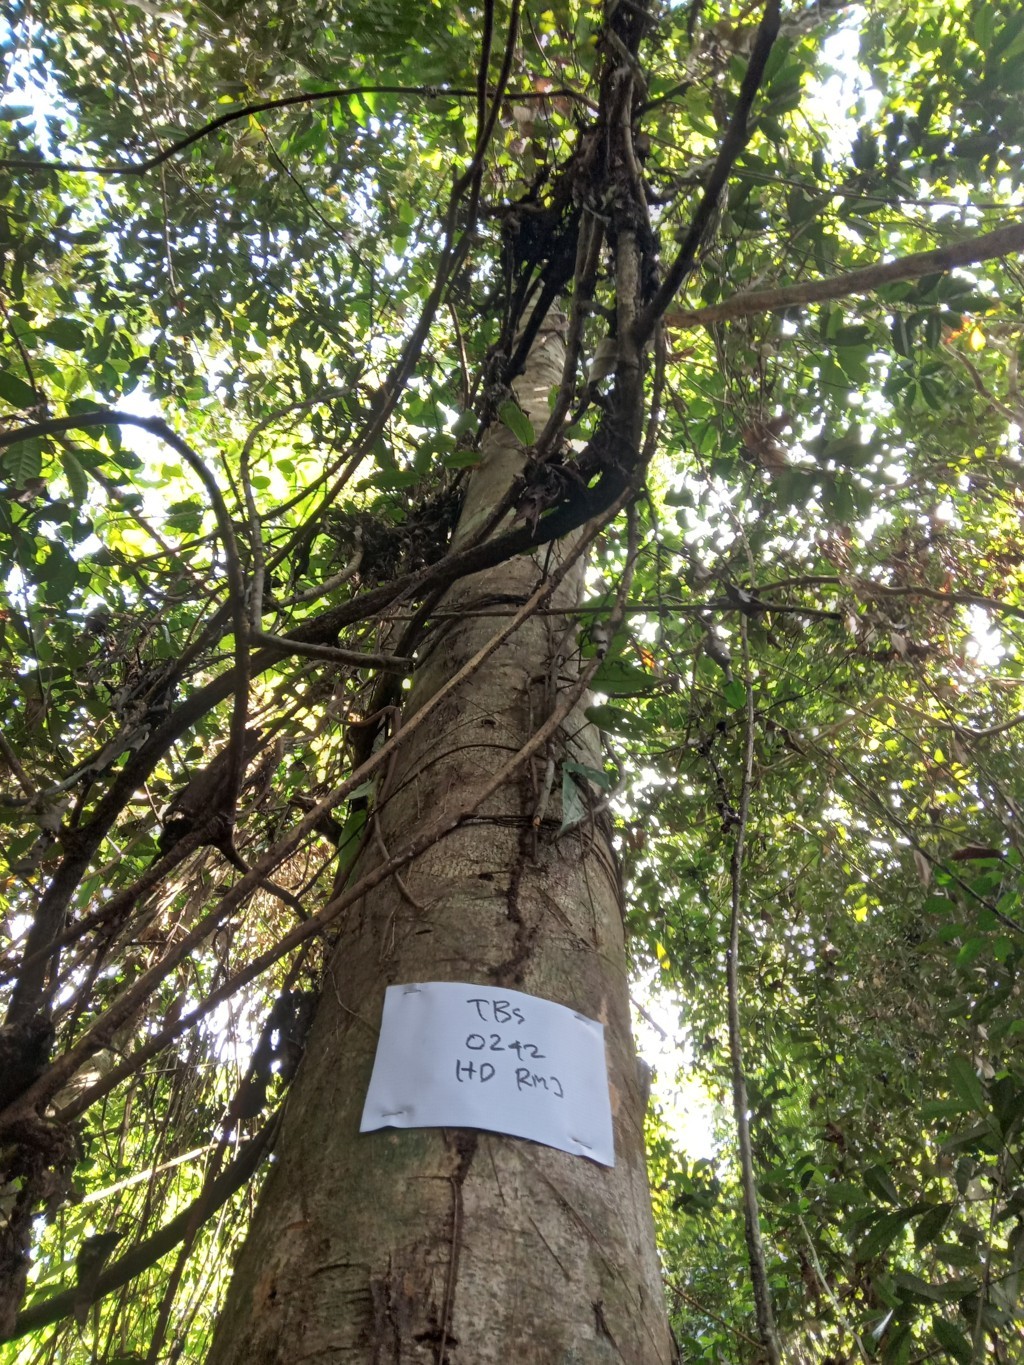 TBS
0242
HD RMJ